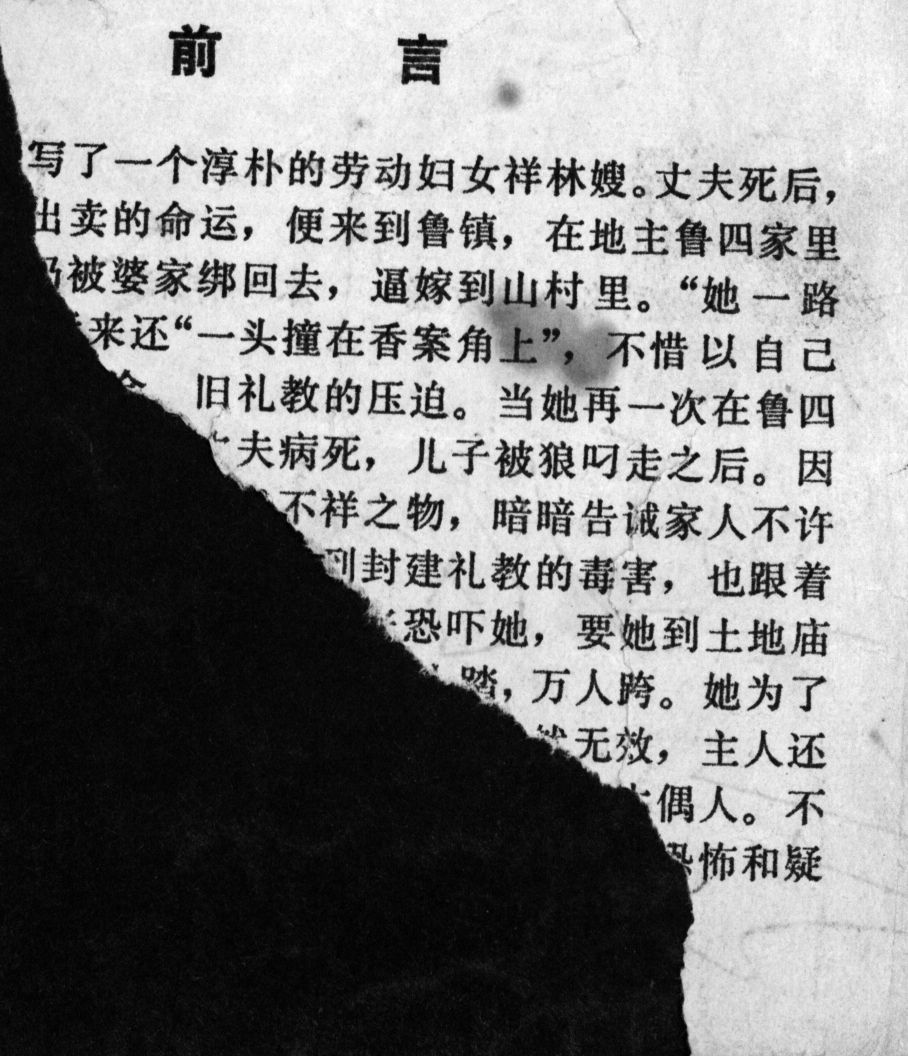 前言
写了一个淳朴的劳动妇女祥林嫂。丈夫死后，
出卖的命运，便来到鲁镇，在地主鲁四家里
被婆家绑回去，逼嫁到山村里。“她一路
来还“一头撞在香案角上”，不惜以自己
旧礼教的压迫。当她再一次在鲁四
夫病死，儿子被狼叼走之后。因
不祥之物，暗暗告诫家人不许
到封建礼教的毒害，也跟着
恐吓她，要她到土地庙
踏，万人跨。她为了
无效，主人还
偶人。不
恐怖和疑